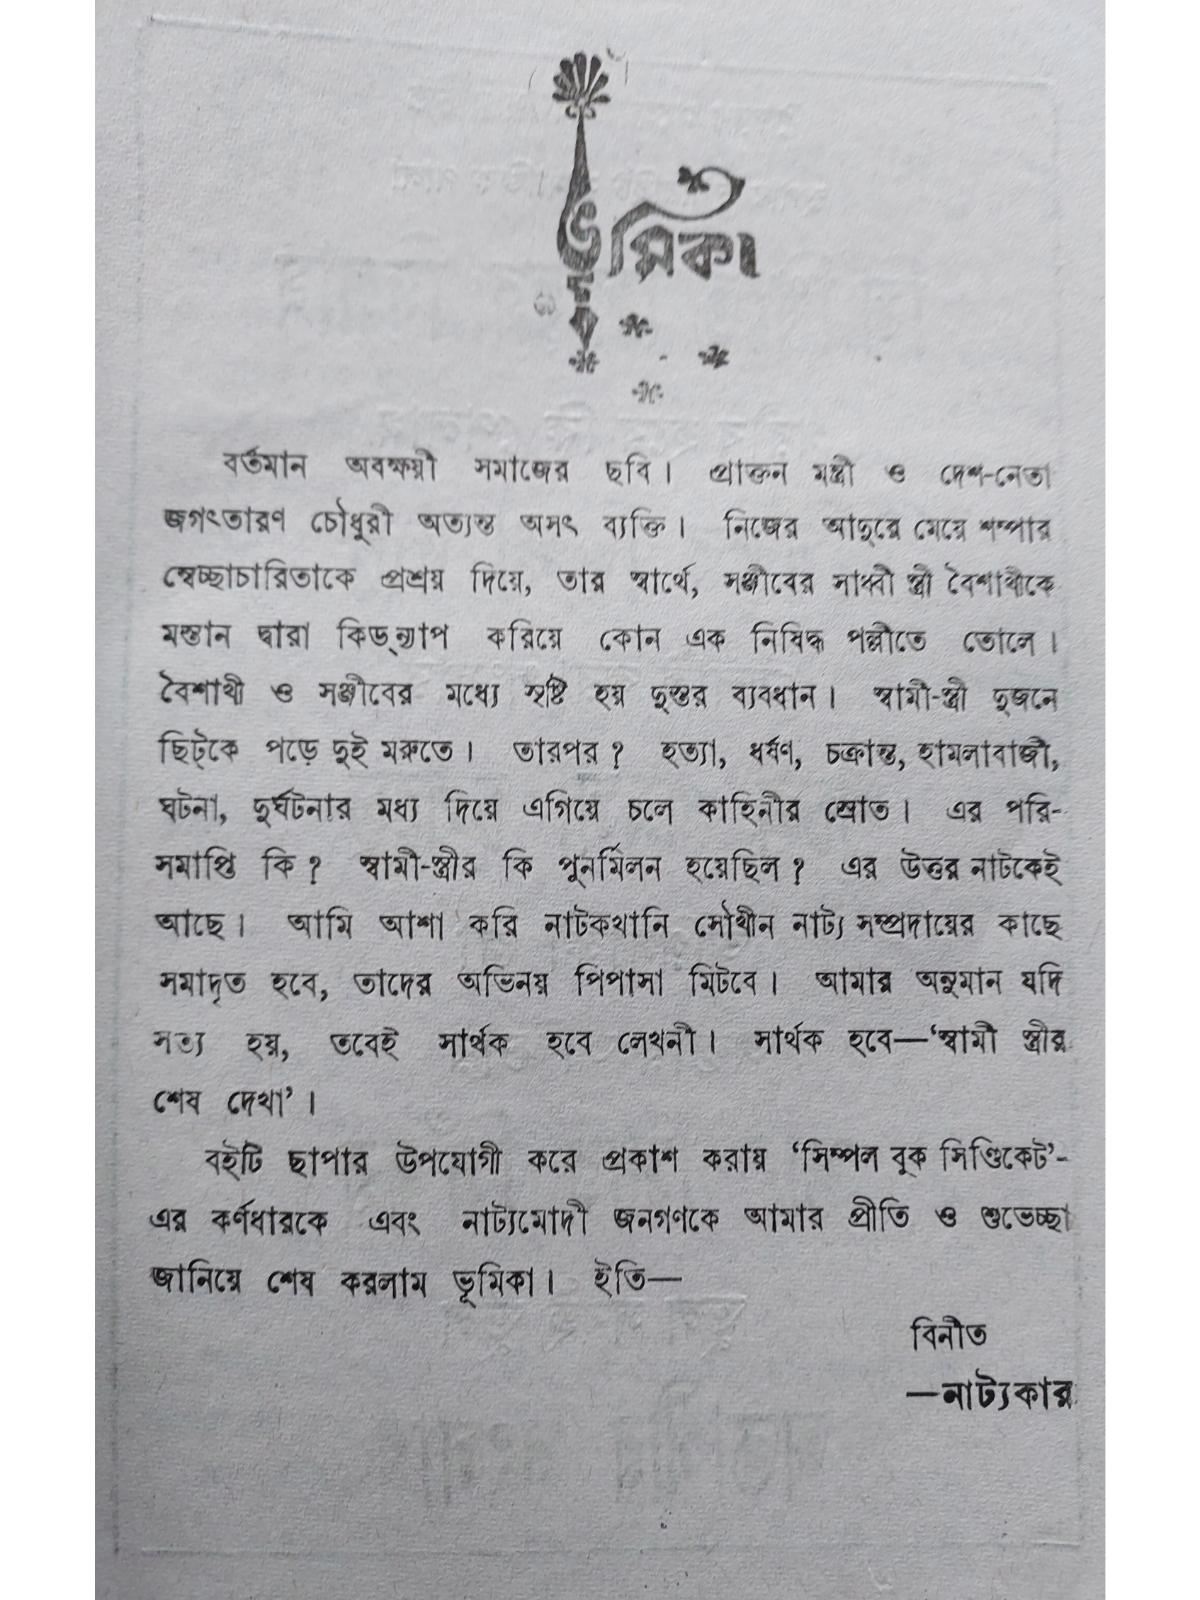 ভূমিকা
বর্তমান অবক্ষয়ী সমাজের ছবি। প্রাক্তন মন্ত্রী ও দেশ-নেতা
জগৎতারণ চৌধুরী অত্যন্ত অসৎ ব্যক্তি। নিজের আদুরে মেয়ে শম্পার
স্বেচ্ছাচারিতাকে প্রশ্রয় দিয়ে, তার স্বার্থে, সঞ্জীবের সাধ্বী স্ত্রী বৈশাখীকে
মস্তান দ্বারা কিড্‌ন্যাপ করিয়ে কোন এক নিষিদ্ধ পল্লীতে তোলে।
বৈশাখী ও সঞ্জীবের মধ্যে সৃষ্টি হয় দুস্তর ব্যবধান। স্বামী-স্ত্রী দুজনে
ছিট্‌কে পড়ে দুই মরুতে। তারপর? হত্যা, ধর্ষণ, চক্রান্ত, হামলাবাজী,
ঘটনা, দুর্ঘটনার মধ্য দিয়ে এগিয়ে চলে কাহিনীর স্রোত। এর পরি-
সমাপ্তি কি? স্বামী-স্ত্রীর কি পুনর্মিলন হয়েছিল? এর উত্তর নাটকেই
আছে। আমি আশা করি নাটকখানি সৌখীন নাট্য সম্প্রদায়ের কাছে
সমাদৃত হবে, তাদের অভিনয় পিপাসা মিটবে। আমার অনুমান যদি
সত্য হয়, তবেই সার্থক হবে লেখনী। সার্থক হবে—‘স্বামী স্ত্রীর
শেষ দেখা’।
বইটি ছাপার উপযোগী করে প্রকাশ করায় ‘সিম্পল বুক সিণ্ডিকেট’-
এর কর্ণধারকে এবং নাট্যমোদী জনগণকে আমার প্রীতি ও শুভেচ্ছা
জানিয়ে শেষ করলাম ভূমিকা। ইতি—
বিনীত
—নাট্যকার